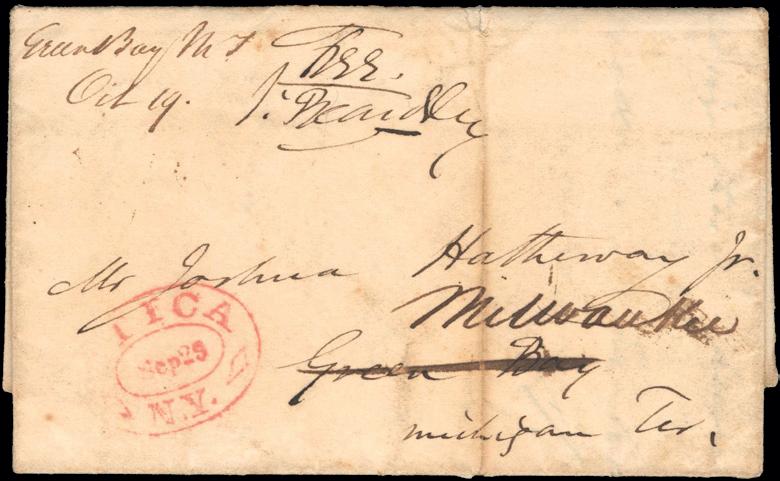 Green Bay M T
Oct 19.
Free.
S. Beardsley
Mr Joshua Hatheway Jr.
Milwaukee
Green Bay
Michigan Ter.
UTICA
Sep 25
N.Y.